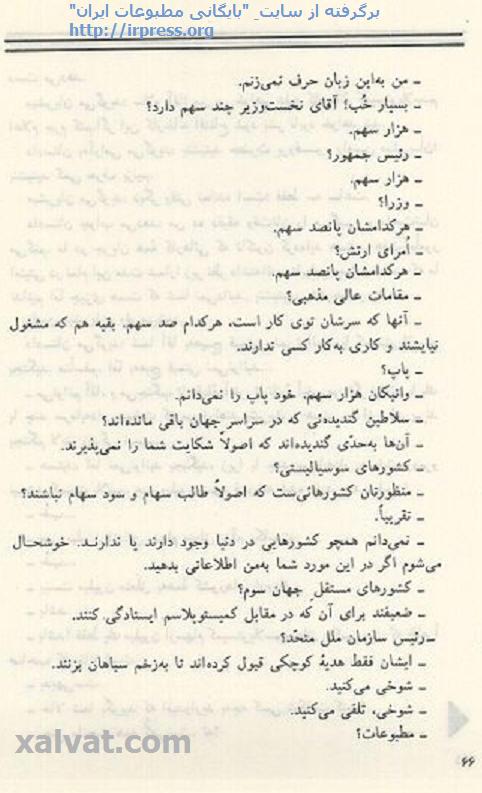 برگرفته از سایت "بایگانی مطبوعات ایران"
http://irpress.org
ـ من به‌این زبان حرف نمی‌زنم.
ـ بسیار خُب؛ آقای نخست‌وزیر چند سهم دارد؟
ـ هزار سهم.
ـ رئیس جمهور؟
ـ هزار سهم.
ـ وزرا؟
ـ هرکدامشان پانصد سهم.
ـ اُمرای ارتش؟
ـ هرکدامشان پانصد سهم.
ـ مقامات عالی مذهبی؟
ـ آنها که سرشان توی کار است، هرکدام صد سهم. بقیه هم که مشغول
نیایشند و کاری به‌کار کسی ندارند.
ـ پاپ؟
ـ واتیکان هزار سهم. خود پاپ را نمی‌دانم.
ـ سلاطین گندیده‌ئی که در سراسر جهان باقی مانده‌اند؟
ـ آن‌ها به‌حدّی گندیده‌اند که اصولاً شکایت شما را نمی‌پذیرند.
ـ کشورهای سوسیالیستی؟
ـ منظورتان کشورهائی‌ست که اصولاً طالب سهام و سود سهام نباشند؟
ـ تقریباً.
ـ نمی‌دانم همچو کشورهایی در دنیا وجود دارند یا ندارند. خوشحال
می‌شوم اگر در این مورد شما به‌من اطلاعاتی بدهید.
ـ کشورهای مستقل جهان سوم؟
ـ ضعیفند برای آن که در مقابل کمیستوپلاسم ایستادگی کنند.
ـ رئیس سازمان ملل متحّد؟
ـ ایشان فقط هدیهٔ کوچکی قبول کرده‌اند تا به‌زخم سیاهان بزنند.
ـ شوخی می‌کنید.
ـ شوخی، تلقی می‌کنید.
ـ مطبوعات؟
xalvat.com
۶۶